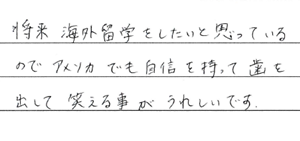 将来 海外留学をしたいと思っている
ので アメリカ でも自信を持って歯を
出して 笑える事が うれしいです.